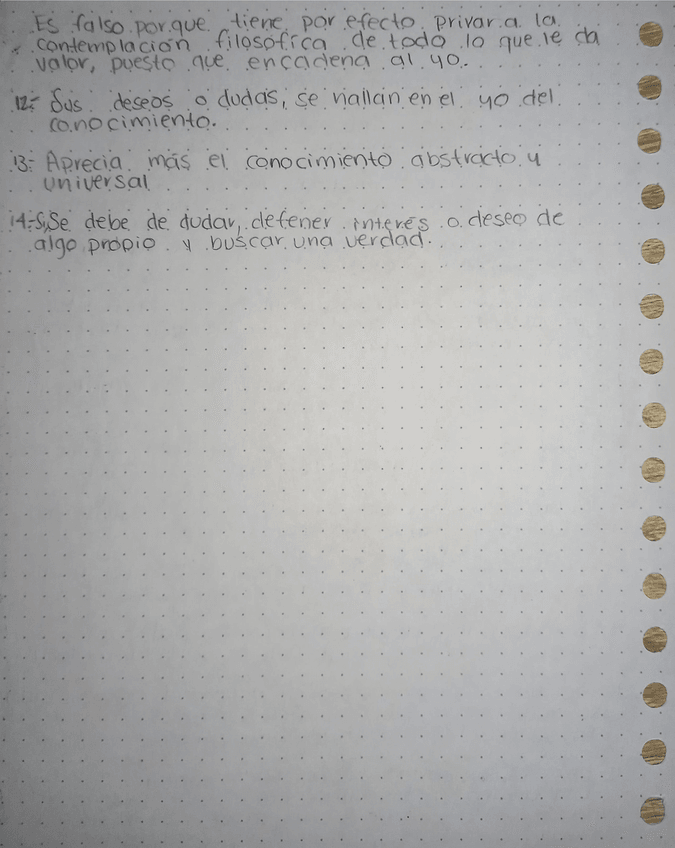 Es falso porque tiene por efecto privar a la
contemplación filosófica de todo lo que le da
valor, puesto que encadena al yo.
12.- Sus deseos o dudas, se hallan en el yo del
conocimiento.
13.- Aprecia más el conocimiento abstracto y
universal
14.- Sí, Se debe de dudar, de tener interés o deseo de
algo propio y buscar una verdad.